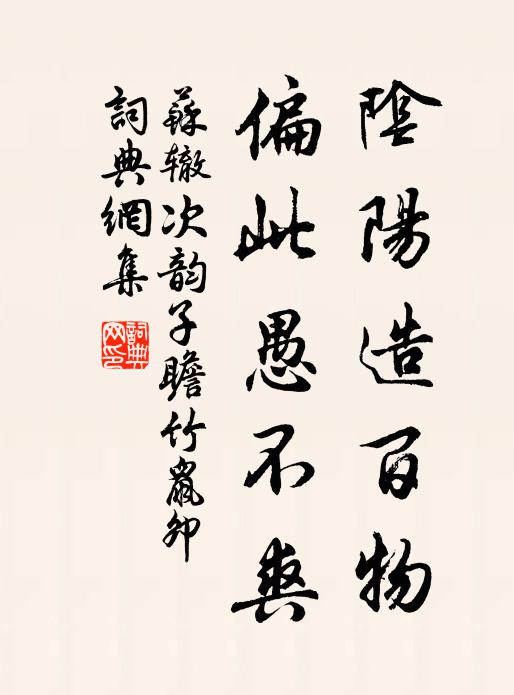 陰陽造百物
偏此愚不爽
蘇辙次韵子瞻竹鼠卯
詞典網集
詞典网印